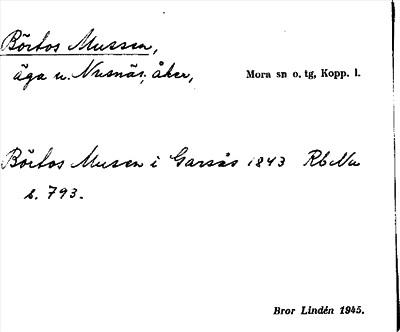 Börtos Mussen,
äga u. Nusnäs, åker, Mora sn o. tg, Kopp. l.
Börtos Musen i Garsås 1843 Rb Na
s. 793.
Bror Lindén 1945.